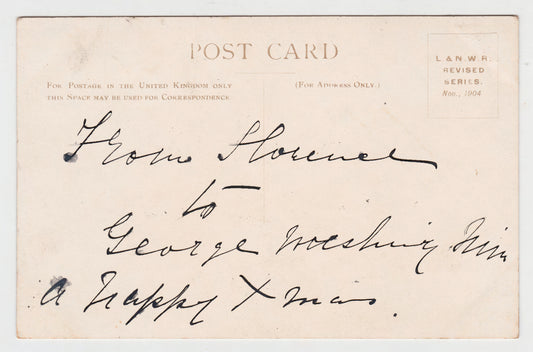 POST CARD
FOR POSTAGE IN THE UNITED KINGDOM ONLY
THIS SPACE MAY BE USED FOR CORRESPONDENCE
(FOR ADDRESS ONLY.)
L & N. W. R.
REVISED
SERIES.
Nov., 1904
From Florence
to
George wishing him
a happy Xmas.